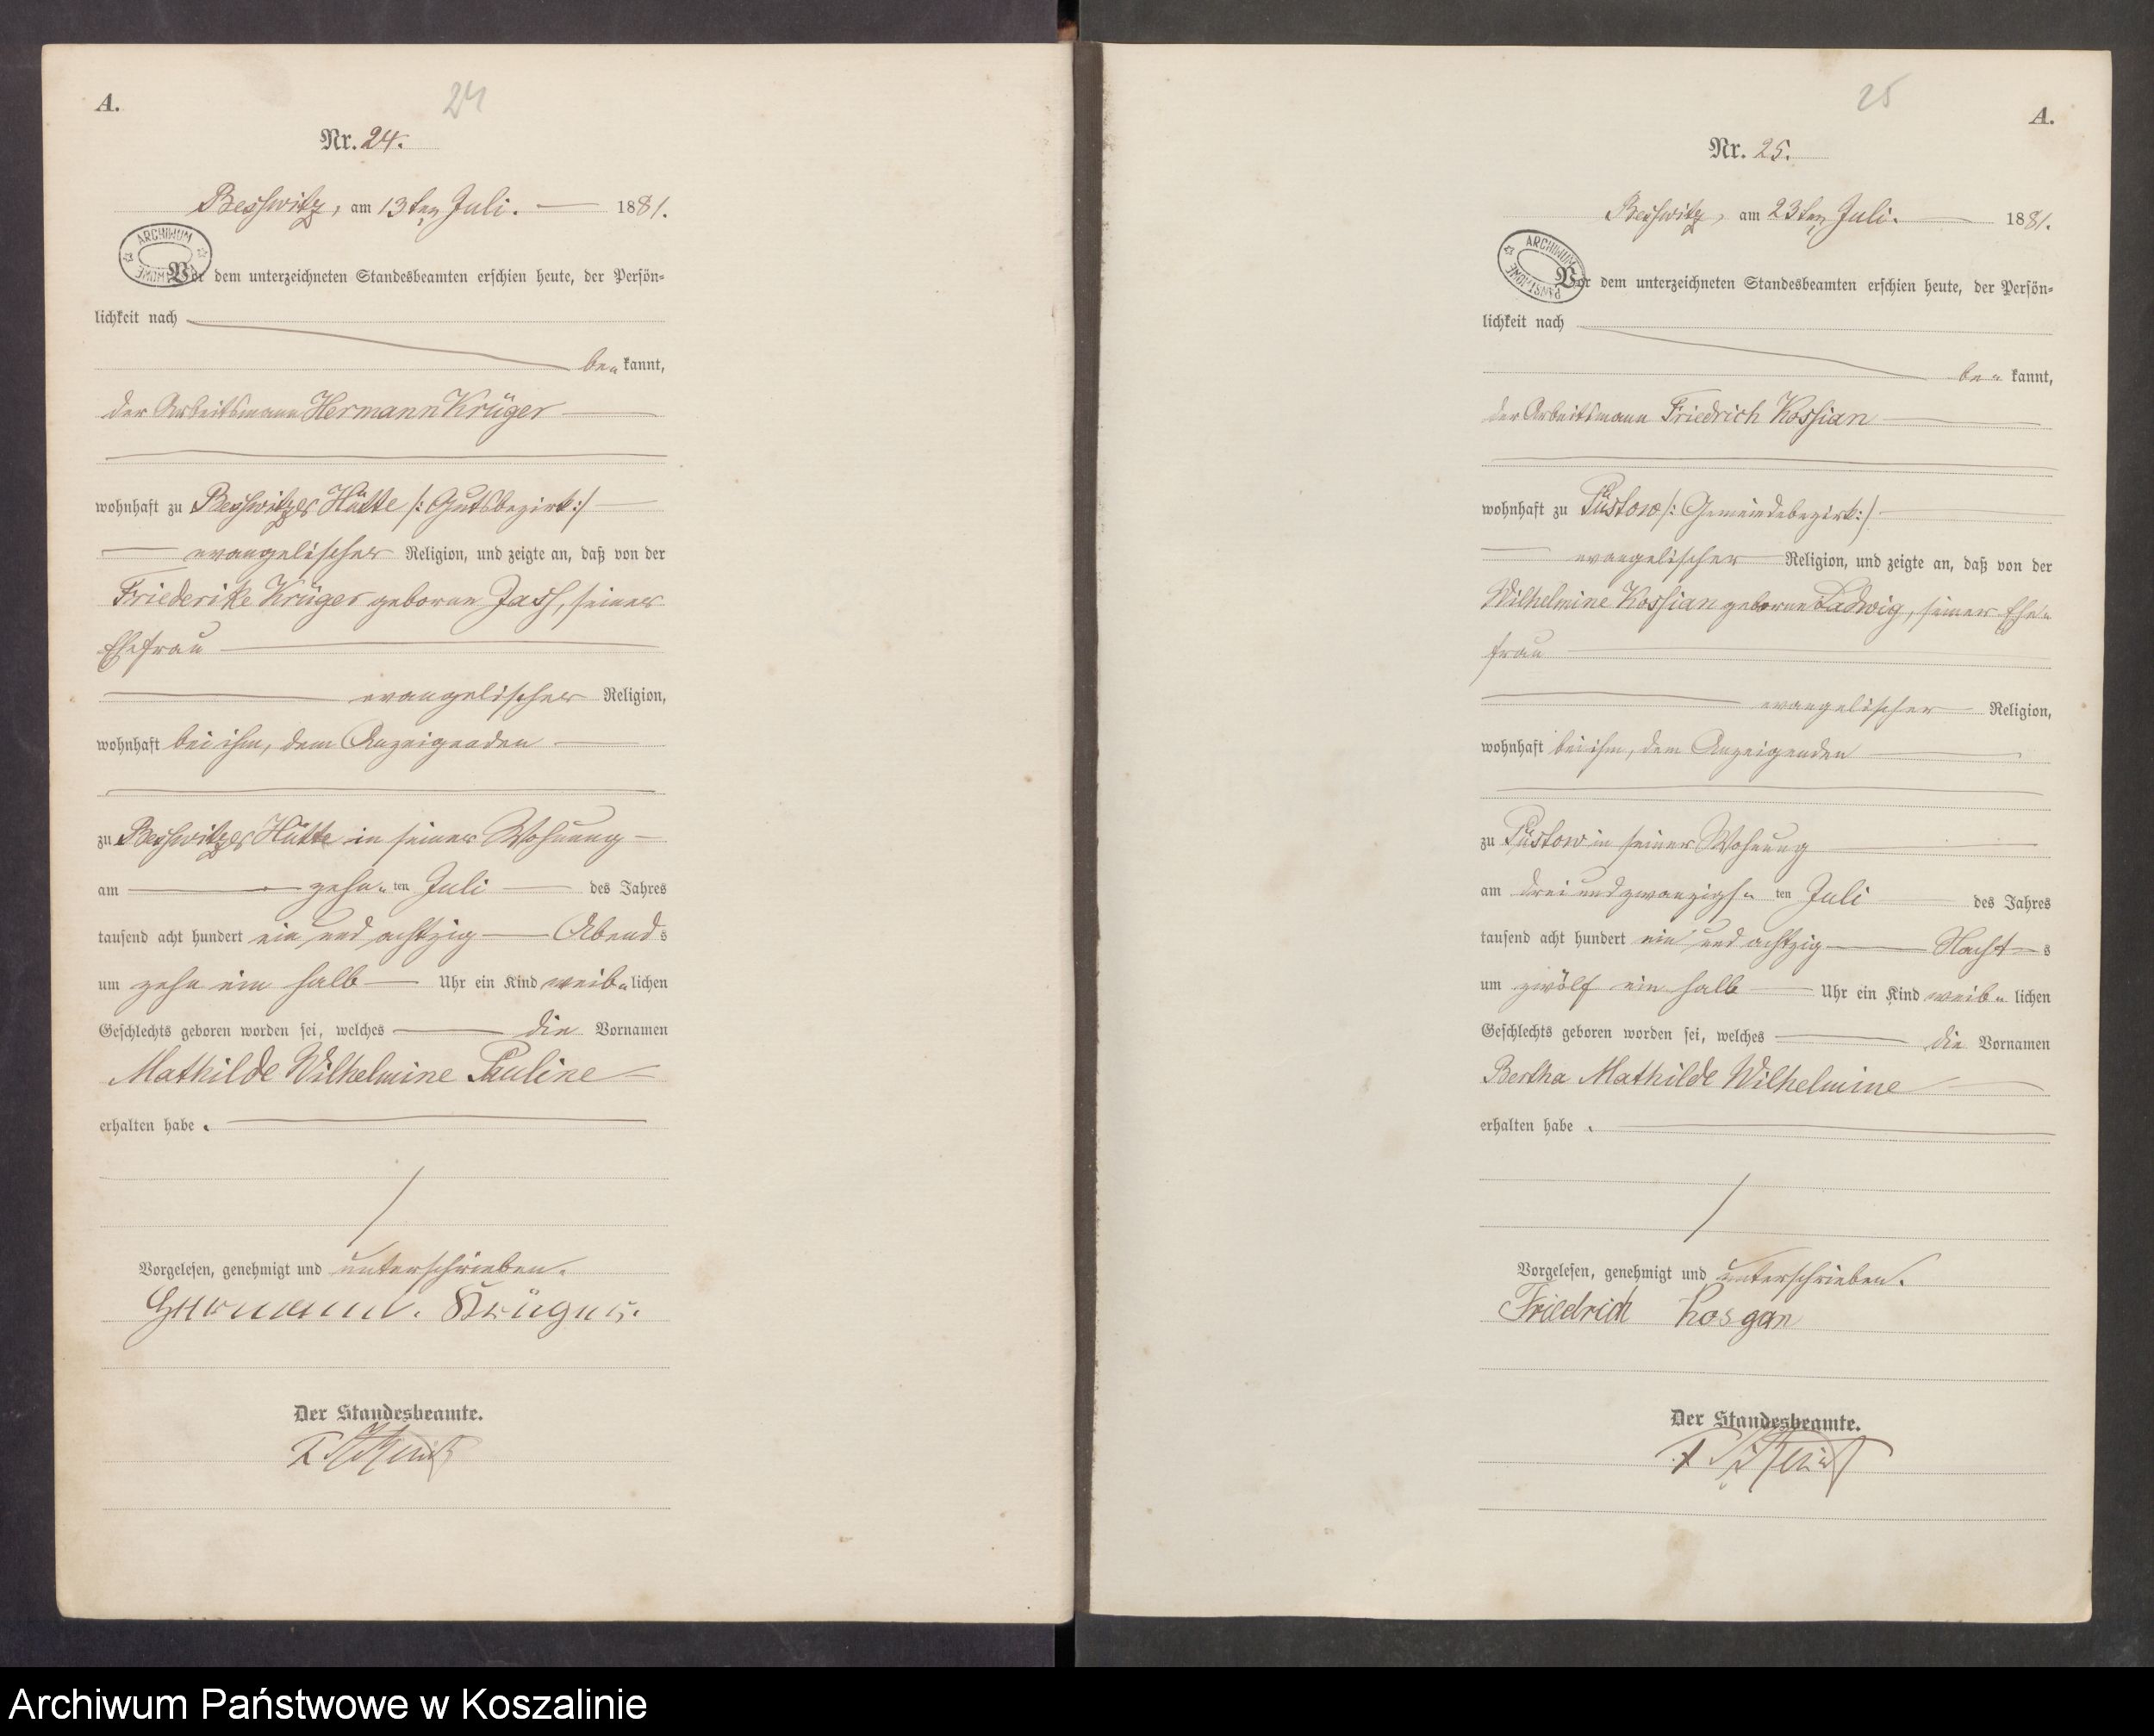 A.
24
Nr. 24.
Beßwitz, am 13ten Juli. 1881.
ARCHIWUM
Vor dem unterzeichneten Standesbeamten erschien heute, der Persön-
lichkeit nach
be- kannt,
der Arbeitsmann Hermann Krüger
wohnhaft zu Beßwitzer Hütte /: Gutsbezirk :/
evangelischer Religion, und zeigte an, daß von der
Friederike Krüger geborne Jass, seiner
Ehefrau
evangelischer Religion,
wohnhaft bei ihm, dem Anzeigenden
zu Beßwitzer Hütte in seiner Wohnung
am zehn- ten Juli des Jahres
tausend acht hundert ein und achtzig Abends
um zehn ein halb Uhr ein Kind weib- lichen
Geschlechts geboren worden sei, welches die Vornamen
Mathilde Wilhelmine Pauline
erhalten habe.
Vorgelesen, genehmigt und unterschrieben.
Hermann. Krüger.
Der Standesbeamte.
25
A.
Nr. 25.
Beßwitz, am 23ten Juli. 1881.
ARCHIWUM PAŃSTWOWE
Vor dem unterzeichneten Standesbeamten erschien heute, der Persön-
lichkeit nach
be- kannt,
der Arbeitsmann Friedrich Kossian
wohnhaft zu Püstow /: Gemeindebezirk :/
evangelischer Religion, und zeigte an, daß von der
Wilhelmine Kossian geborne Ladwig, seiner Ehe-
frau
evangelischer Religion,
wohnhaft bei ihm, dem Anzeigenden
zu Püstow in seiner Wohnung
am drei und zwanzigs- ten Juli des Jahres
tausend acht hundert ein und achtzig Nacht s
um zwölf ein halb Uhr ein Kind weib- lichen
Geschlechts geboren worden sei, welches die Vornamen
Bertha Mathilde Wilhelmine
erhalten habe.
Vorgelesen, genehmigt und unterschrieben.
Friedrich Kosgan
Der Standesbeamte.
Archiwum Państwowe w Koszalinie